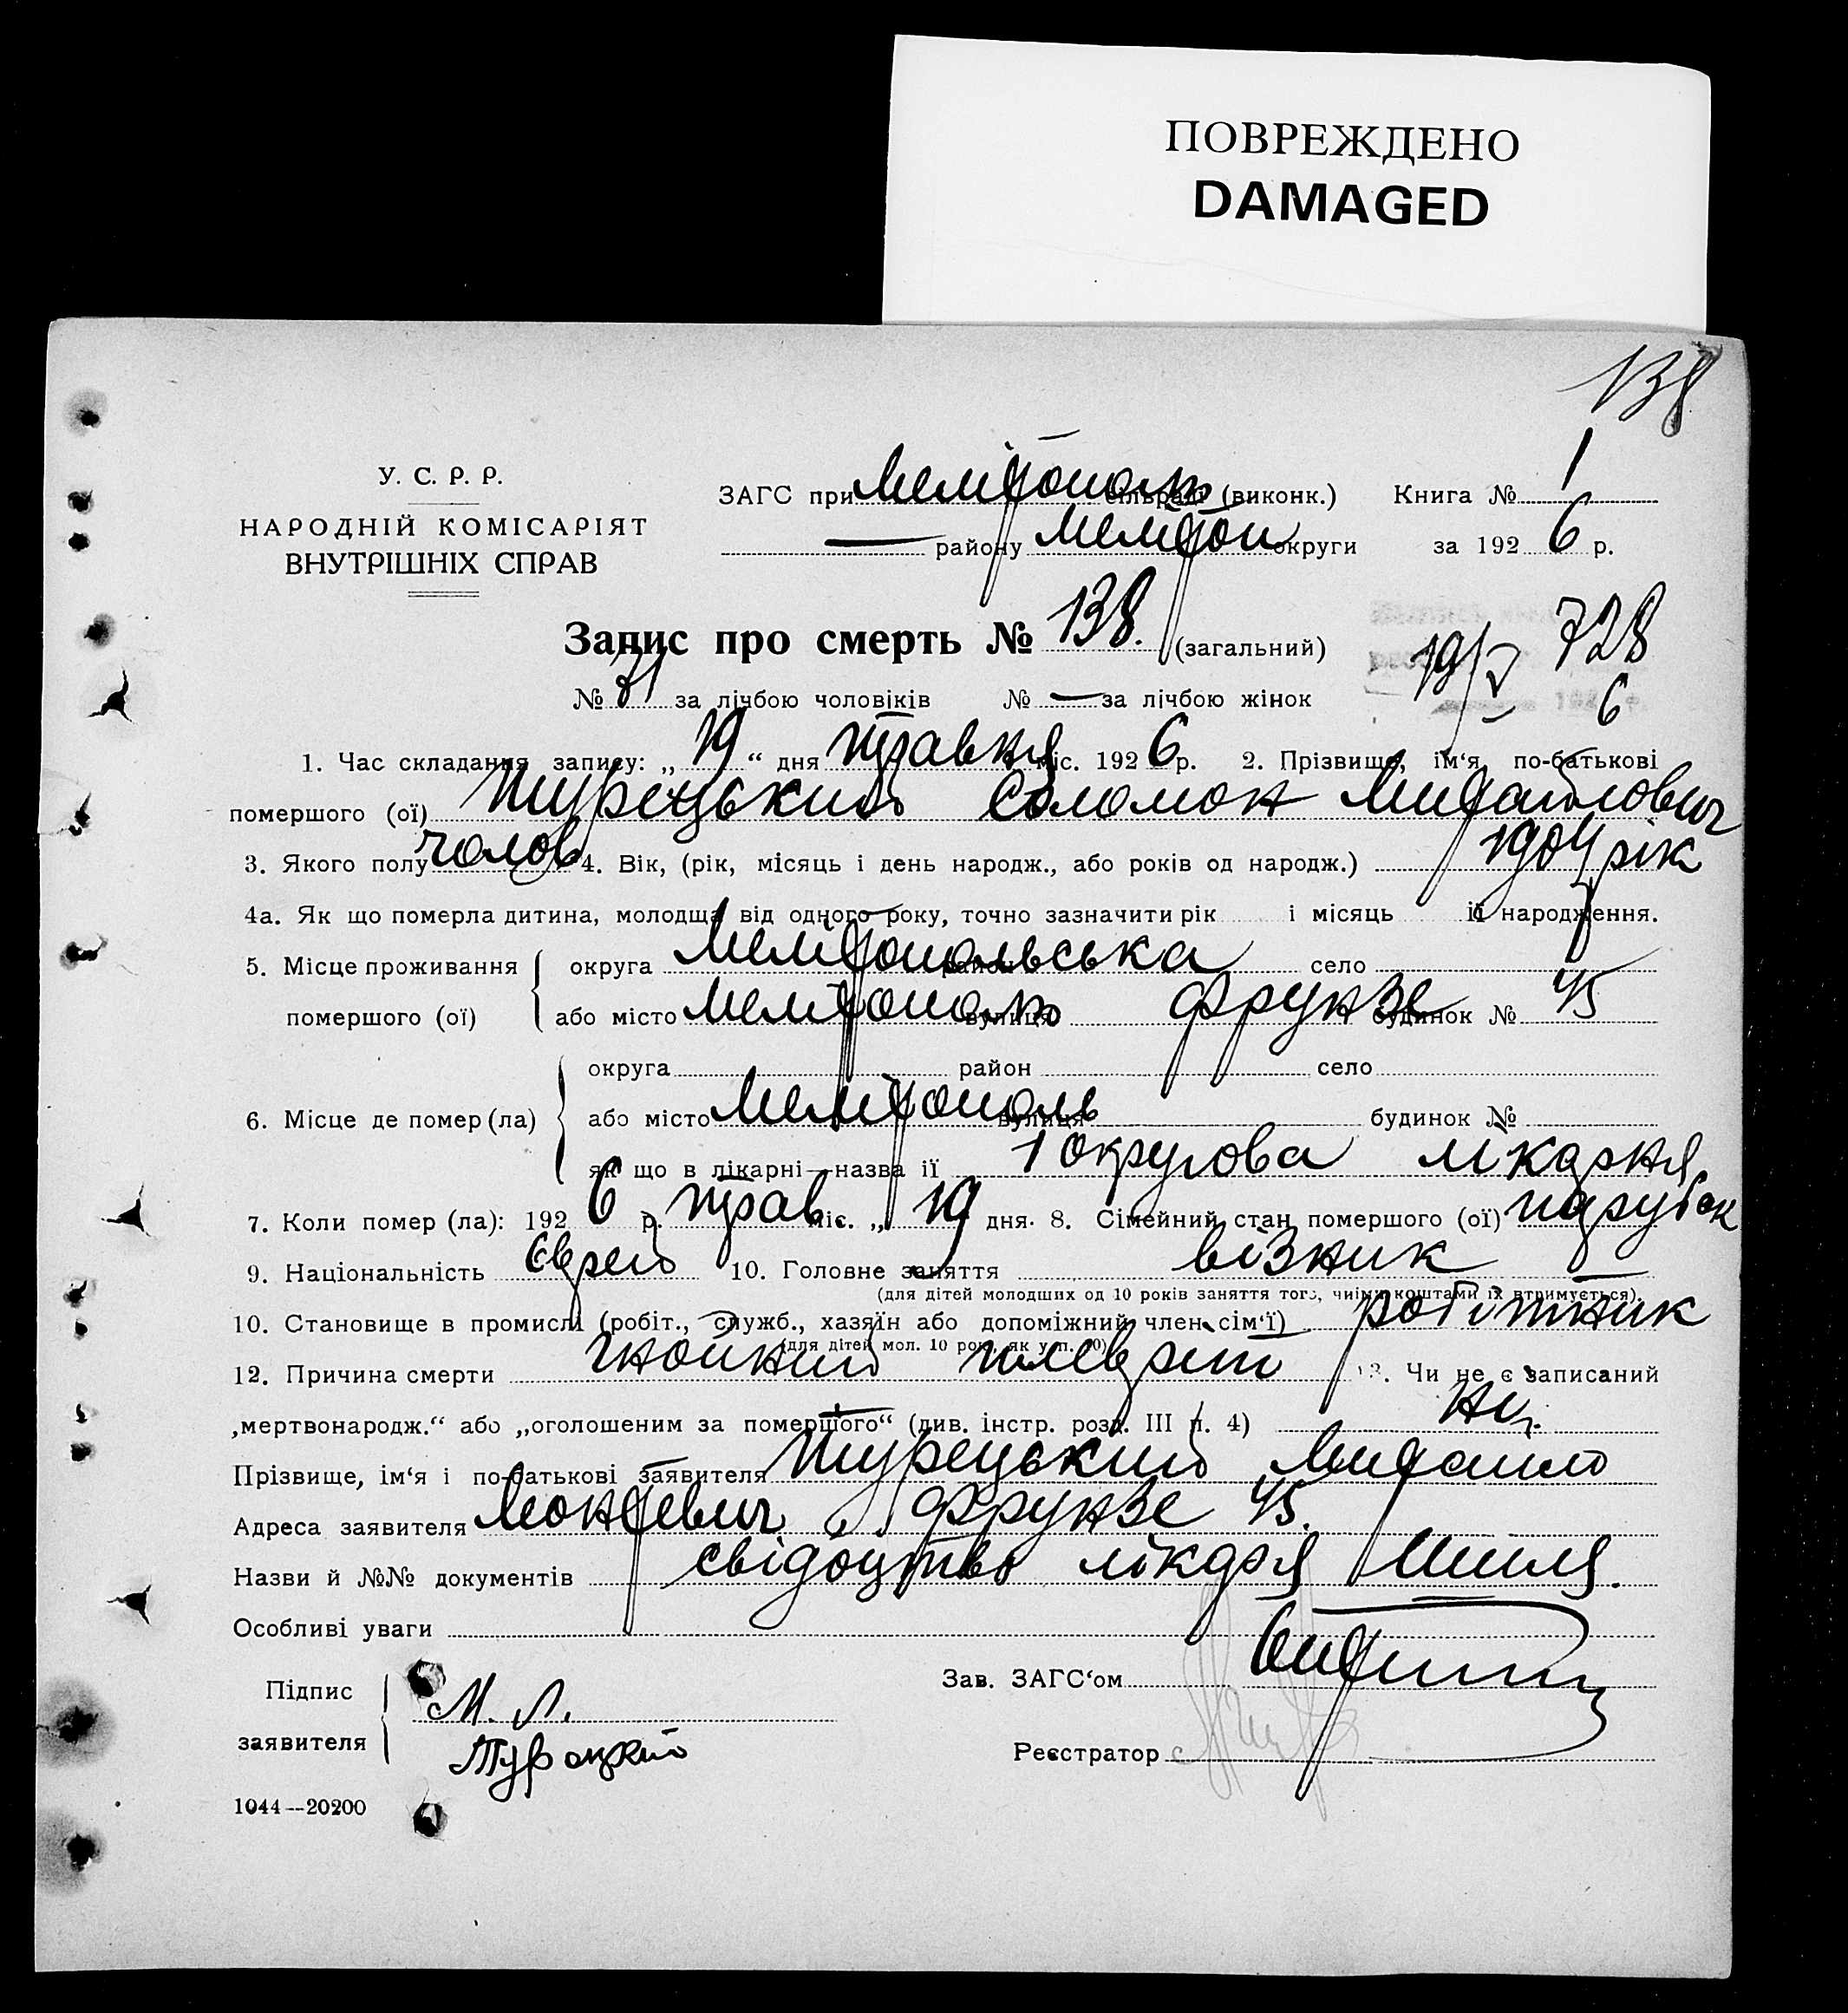 ПОВРЕЖДЕНО
DAMAGED
138
У. С. Р. Р.
НАРОДНІЙ КОМІСАРІЯТ
ВНУТРІШНІХ СПРАВ
ЗАГС при Мелітополь сільраді (виконк.) Книга № 1
— району Мелітоп округи за 1926 р.
Запис про смерть № 138. (загальний)
19/V 728
6
№ 71 за лічбою чоловіків № — за лічбою жінок
1. Час складання запису: „19“ дня травня міс. 1926 р. 2. Прізвище, ім‘я, по-батькові
помершого (ої) Турецький Соломон Михайлович
3. Якого полу чолов 4. Вік, (рік, місяць і день народж., або років од народж.) 1904 рік
4а. Як що померла дитина, молодща від одного року, точно зазначити рік і місяць її народження.
5. Місце проживання помершого (ої) округа Мелітопольська район село
або місто Мелітополь вулиця Фрунзе будинок № 45
6. Місце де помер (ла) округа район село
або місто Мелітополь вулиця будинок №
як що в лікарні—назва її 1 округова лікарня.
7. Коли помер (ла): 1926 р. трав. міс. „19 дня. 8. Сімейний стан помершого (ої) парубок
9. Національність Єврей 10. Головне заняття візник
(для дітей молодших од 10 років заняття того, чиїми коштами їх втримується).
10. Становище в промислі (робіт., служб., хазяїн або допоміжний член сім‘ї) робітник
(для дітей мол. 10 рок., як у п. 10)
12. Причина смерти гнойний плеврит 13. Чи не є записаний
„мертвонародж.“ або „оголошеним за помершого“ (див. інстр. розд. III п. 4) ні.
Прізвище, ім‘я і по-батькові заявителя Турецький Михайло
Адреса заявителя Фрунзе 45.
Назви й №№ документів свідоцтво лікаря
Особливі уваги
Підпис заявителя М. Л.
Турецкий
Зав. ЗАГС‘ом
Реєстратор
1044—20200